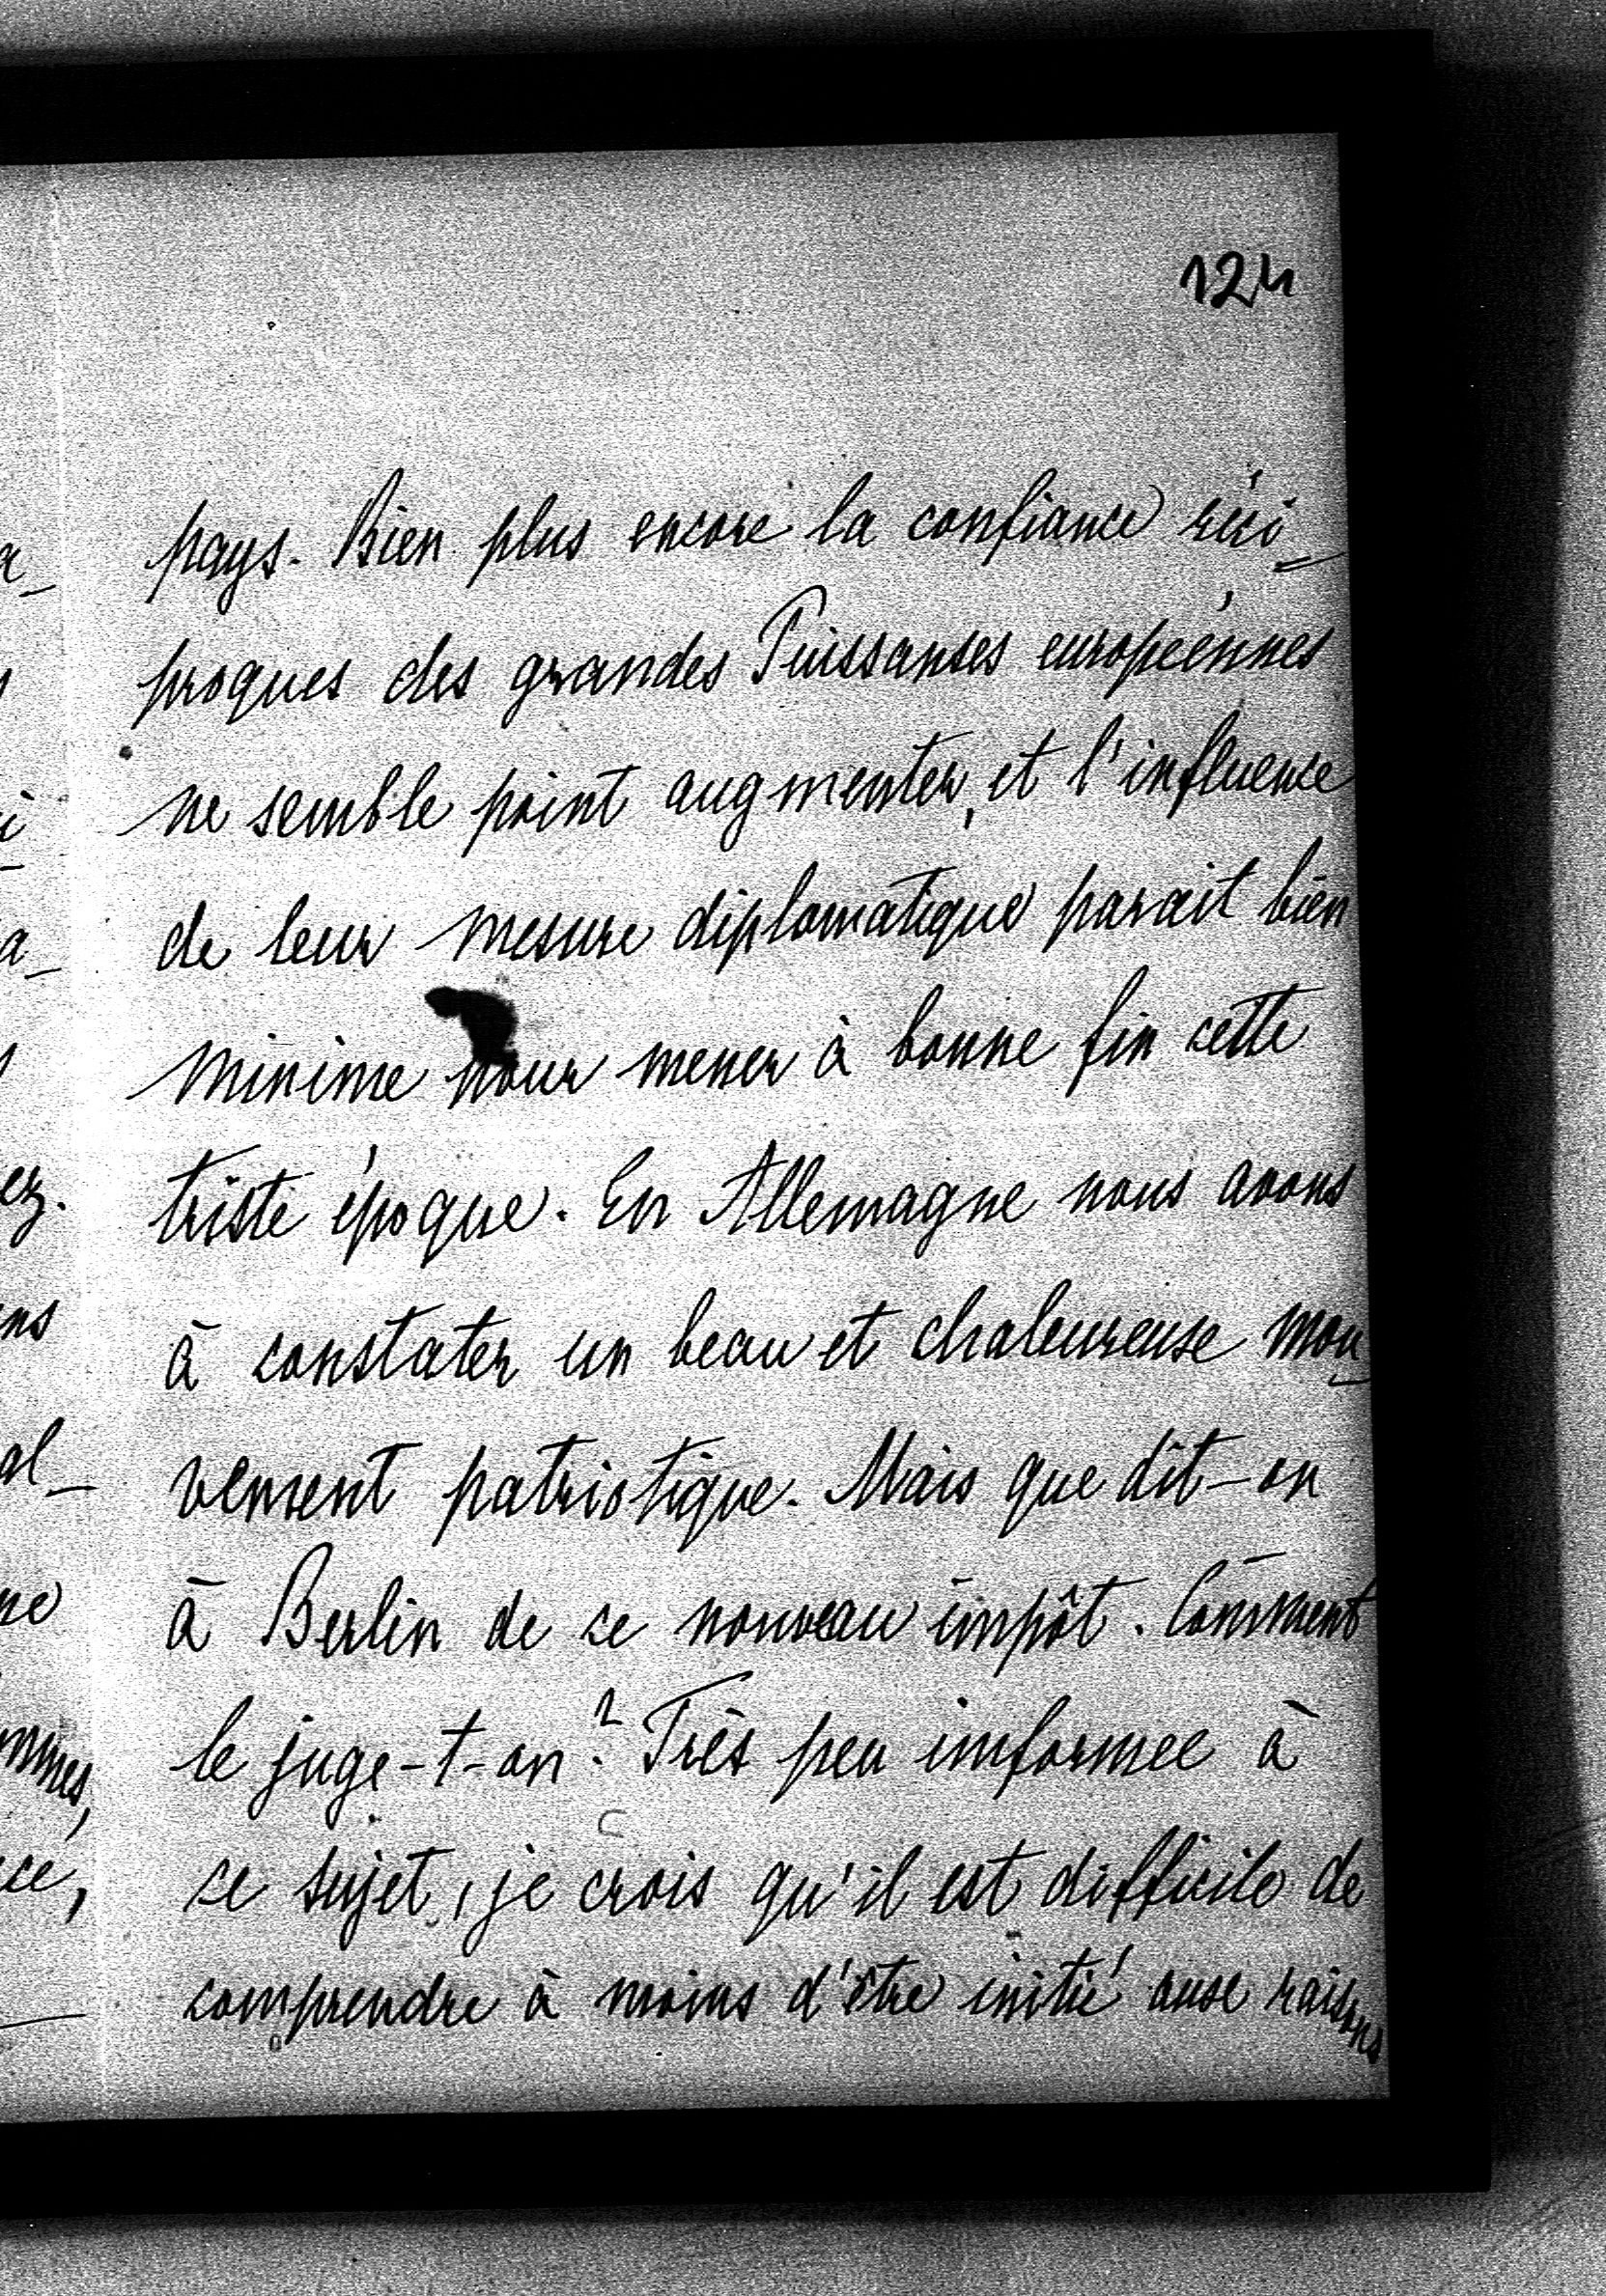 124
pays. Bien plus encore la confiance réci-
proques des grandes Puissanses européennes
ne semble point augmenter, et l'influence
de leur mesure diplomatique parait bien
minime pour mener à bonne fin cette
triste époque. En Allemagne nous avons
à constater un beau et chaleureuse mou-
vement patriotique. Mais que dit-on
à Berlin de ce nouveau impôt. Comment
le juge-t-on? Très peu informee à
ce sujet, je crois qu'il est difficile de
comprendre à moins d'être initié aux raisons